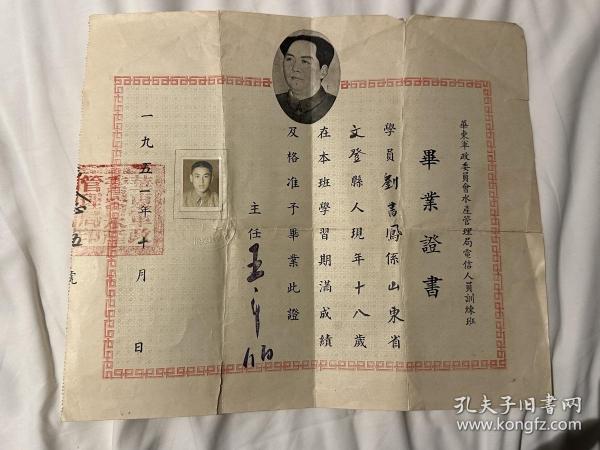 華東軍政委員會水產管理局電信人員訓練班
畢業證書
學員劉書鳳係山東省
文登縣人現年十八歲
在本班學習期滿成績
及格准予畢業此證
主任
一九五一年十月 日
號
孔夫子旧书网
www.kongfz.com